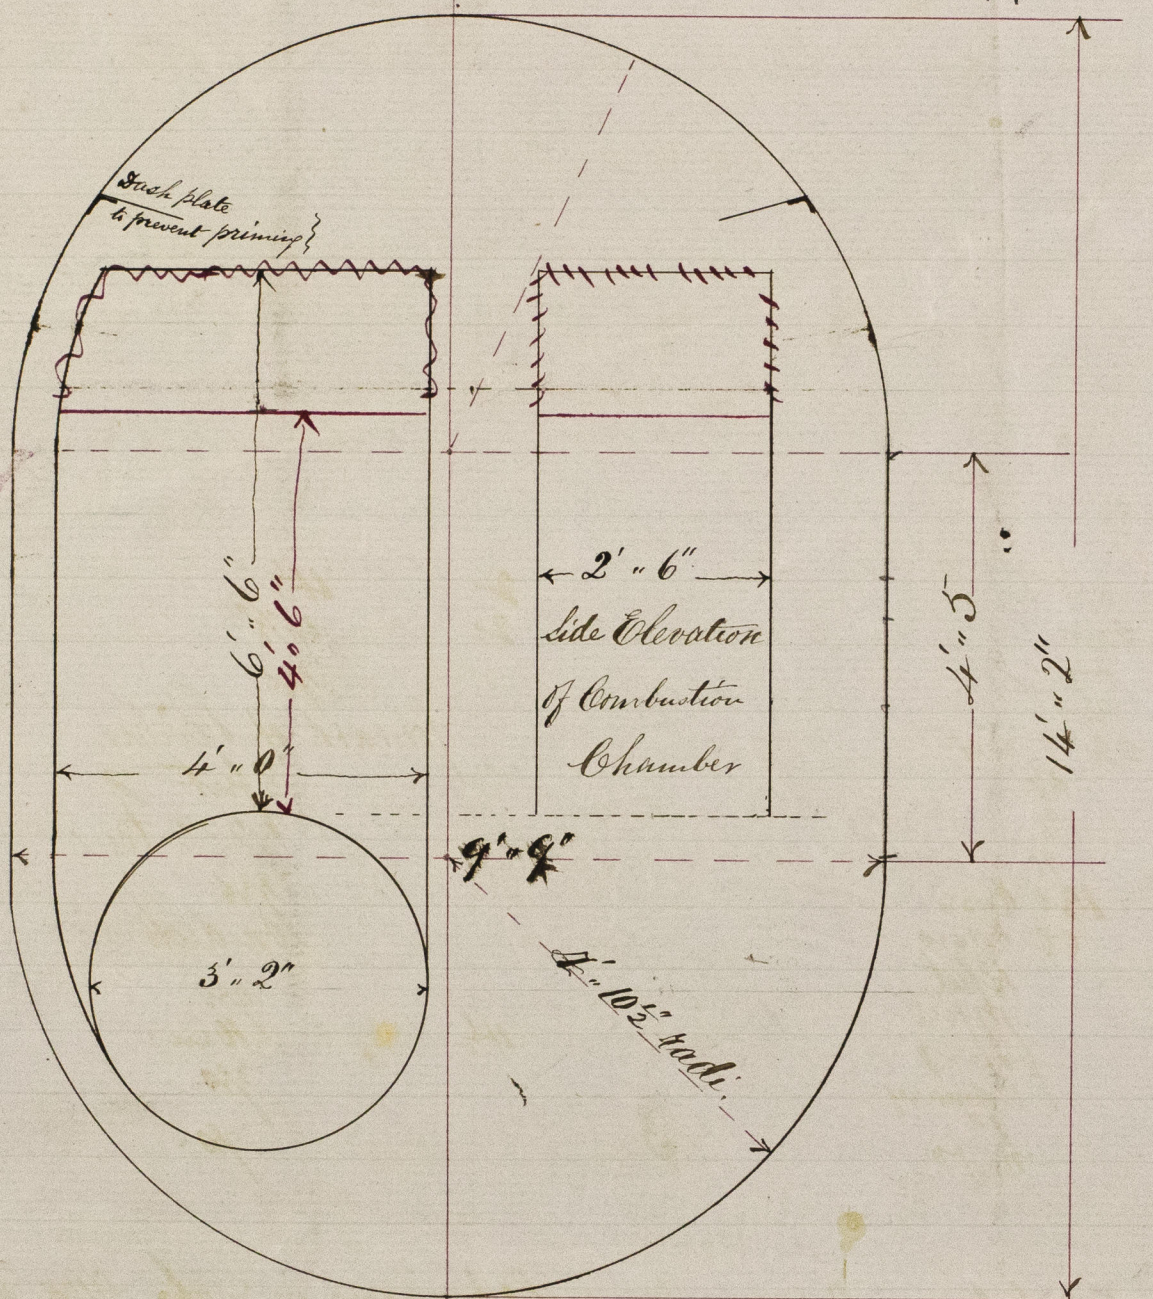 Dash plate
to prevent priming
6' " 6"
4' 6"
2' " 6"
Side Elevation
of Combustion
Chamber
4' " 5
14' " 2"
4' " 0"
9' " 9"
3' " 2"
4' " 10½" radi.